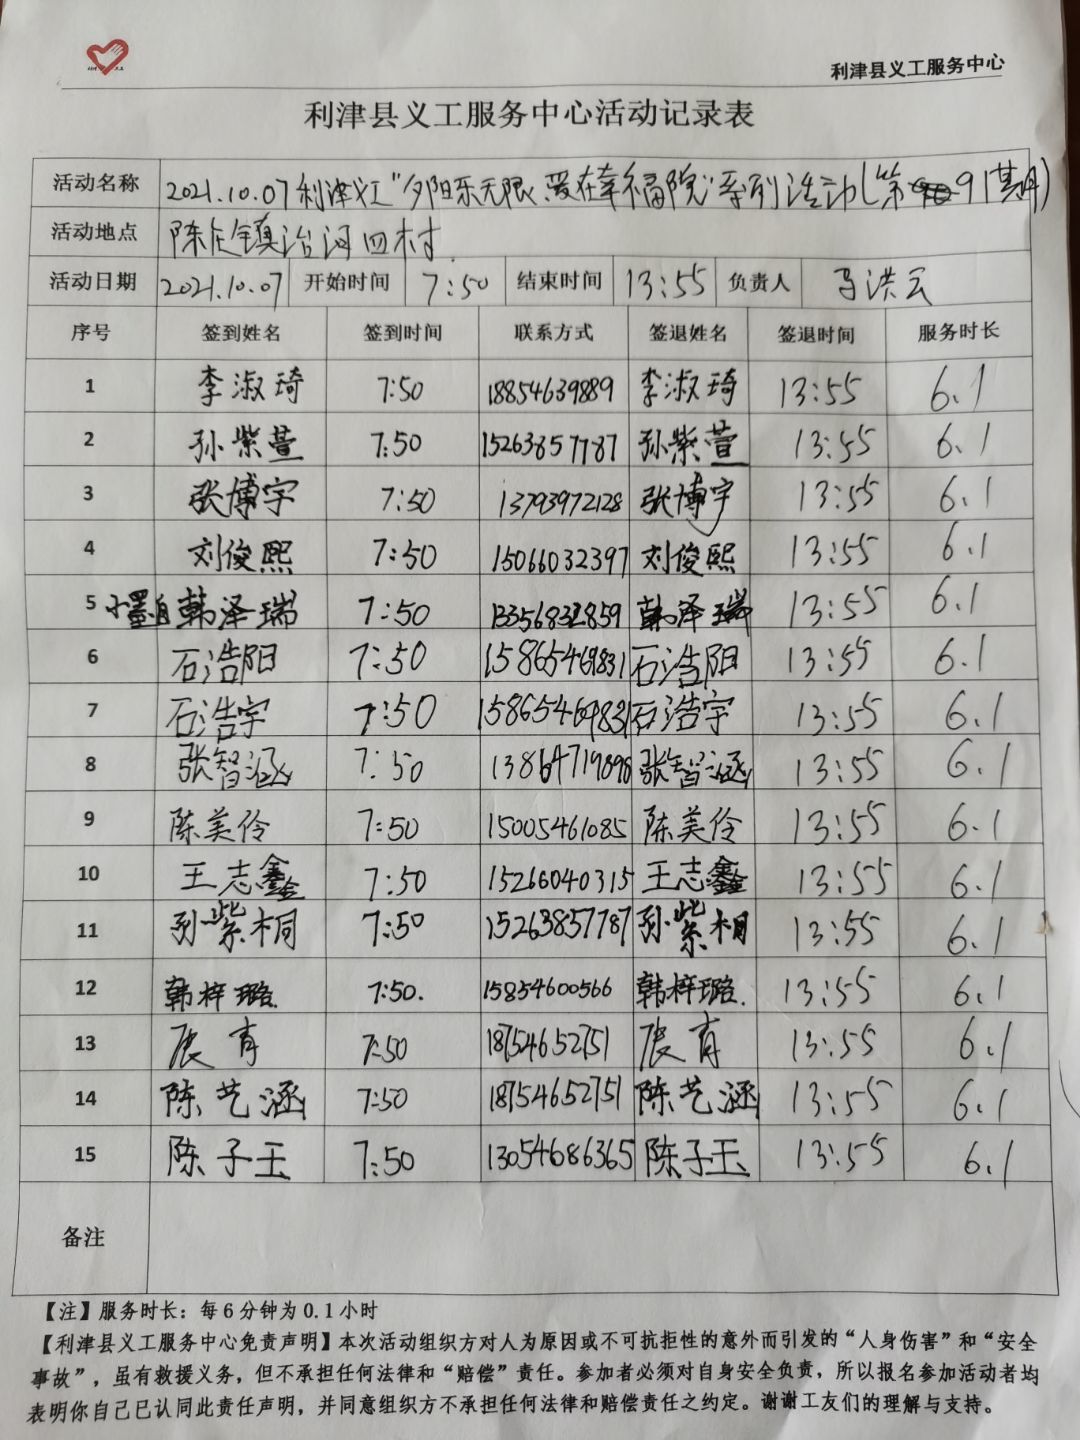 利津县义工服务中心
利津县义工服务中心活动记录表
活动名称 2021.10.07利津义工“夕阳乐无限、爱在幸福院”系列活动(第91期)
活动地点 陈庄镇治河四村
活动日期 2021.10.07 开始时间 7:50 结束时间 13:55 负责人 马洪云
序号 签到姓名 签到时间 联系方式 签退姓名 签退时间 服务时长
1 李淑琦 7:50 18854639889 李淑琦 13:55 6.1
2 孙紫萱 7:50 15263857787 孙紫萱 13:55 6.1
3 张博宇 7:50 13793972128 张博宇 13:55 6.1
4 刘俊熙 7:50 15066032397 刘俊熙 13:55 6.1
5 韩泽瑞 7:50 韩泽瑞 13:55 6.1
6 石浩阳 7:50 15865469831 石浩阳 13:55 6.1
7 石浩宇 7:50 15865469831 石浩宇 13:55 6.1
8 张智涵 7:50 13864719898 张智涵 13:55 6.1
9 陈美伶 7:50 15005461085 陈美伶 13:55 6.1
10 王志鑫 7:50 15266040315 王志鑫 13:55 6.1
11 孙紫桐 7:50 15263857787 孙紫桐 13:55 6.1
12 韩梓璐. 7:50. 15854600566 韩梓璐. 13:55 6.1
13 展育 7:50 18754652751 展育 13:55 6.1
14 陈艺涵 7:50 18754652751 陈艺涵 13:55 6.1
15 陈子玉 7:50 13054686365 陈子玉 13:55 6.1
备注
【注】服务时长：每6分钟为0.1小时
【利津县义工服务中心免责声明】本次活动组织方对人为原因或不可抗拒性的意外而引发的“人身伤害”和“安全
事故”，虽有救援义务，但不承担任何法律和“赔偿”责任。参加者必须对自身安全负责，所以报名参加活动者均
表明你自己已认同此责任声明，并同意组织方不承担任何法律和赔偿责任之约定。谢谢工友们的理解与支持。